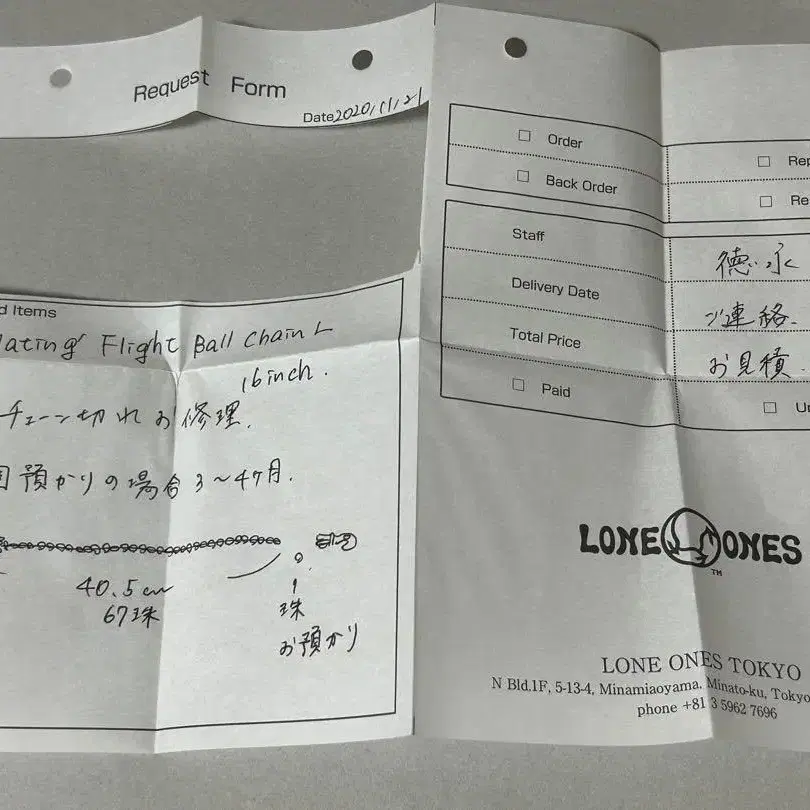 Request Form
Date 2020,11,21
d Items
lating Flight Ball Chain L
16inch.
チェーン切れお修理.
預かりの場合3〜4ヶ月.
40.5cm
67珠
1
珠
お預かり
Order
Back Order
Rep
Re
Staff
徳永
Delivery Date
ご連絡.
Total Price
お見積.
Paid
Un
LONE ONES
TM
LONE ONES TOKYO
N Bld.1F, 5-13-4, Minamiaoyama, Minato-ku, Tokyo
phone +81 3 5962 7696